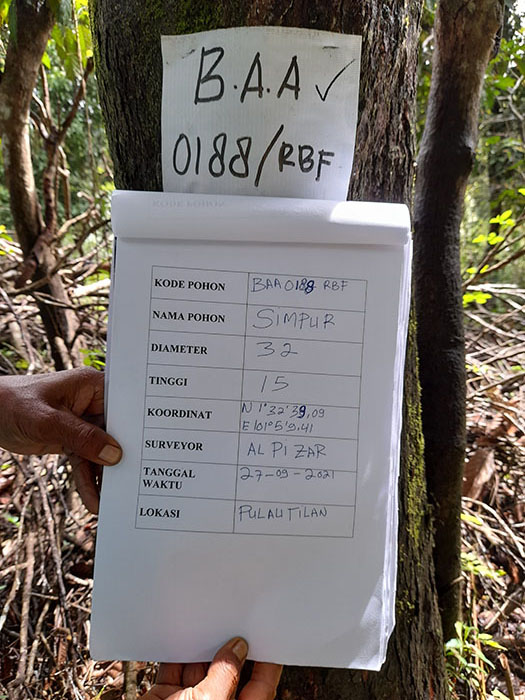 B.A.A ✓
0188/RBF
KODE POHON BAA 0188 RBF
NAMA POHON SIMPUR
DIAMETER 32
TINGGI 15
KOORDINAT N 1°32'39,09
E 101°5'9,41
SURVEYOR AL PI ZAR
TANGGAL WAKTU 27-09-2021
LOKASI PULAU TILAN